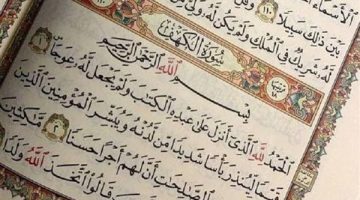 الأسماء
بين ذلك سبيلا
له شريك في الملك ولم يكن له ولي
سورة الكهف
بسم الله الرحمن الرحيم
الحمد لله الذي أنزل على عبده الكتب ولم يجعل له عوجا
قيما لينذر بأسا شديدا من لدنه ويبشر المؤمنين الذين
الصالحات أن لهم أجرا حسنا ماكثين
قالوا اتخذ الله ولدا